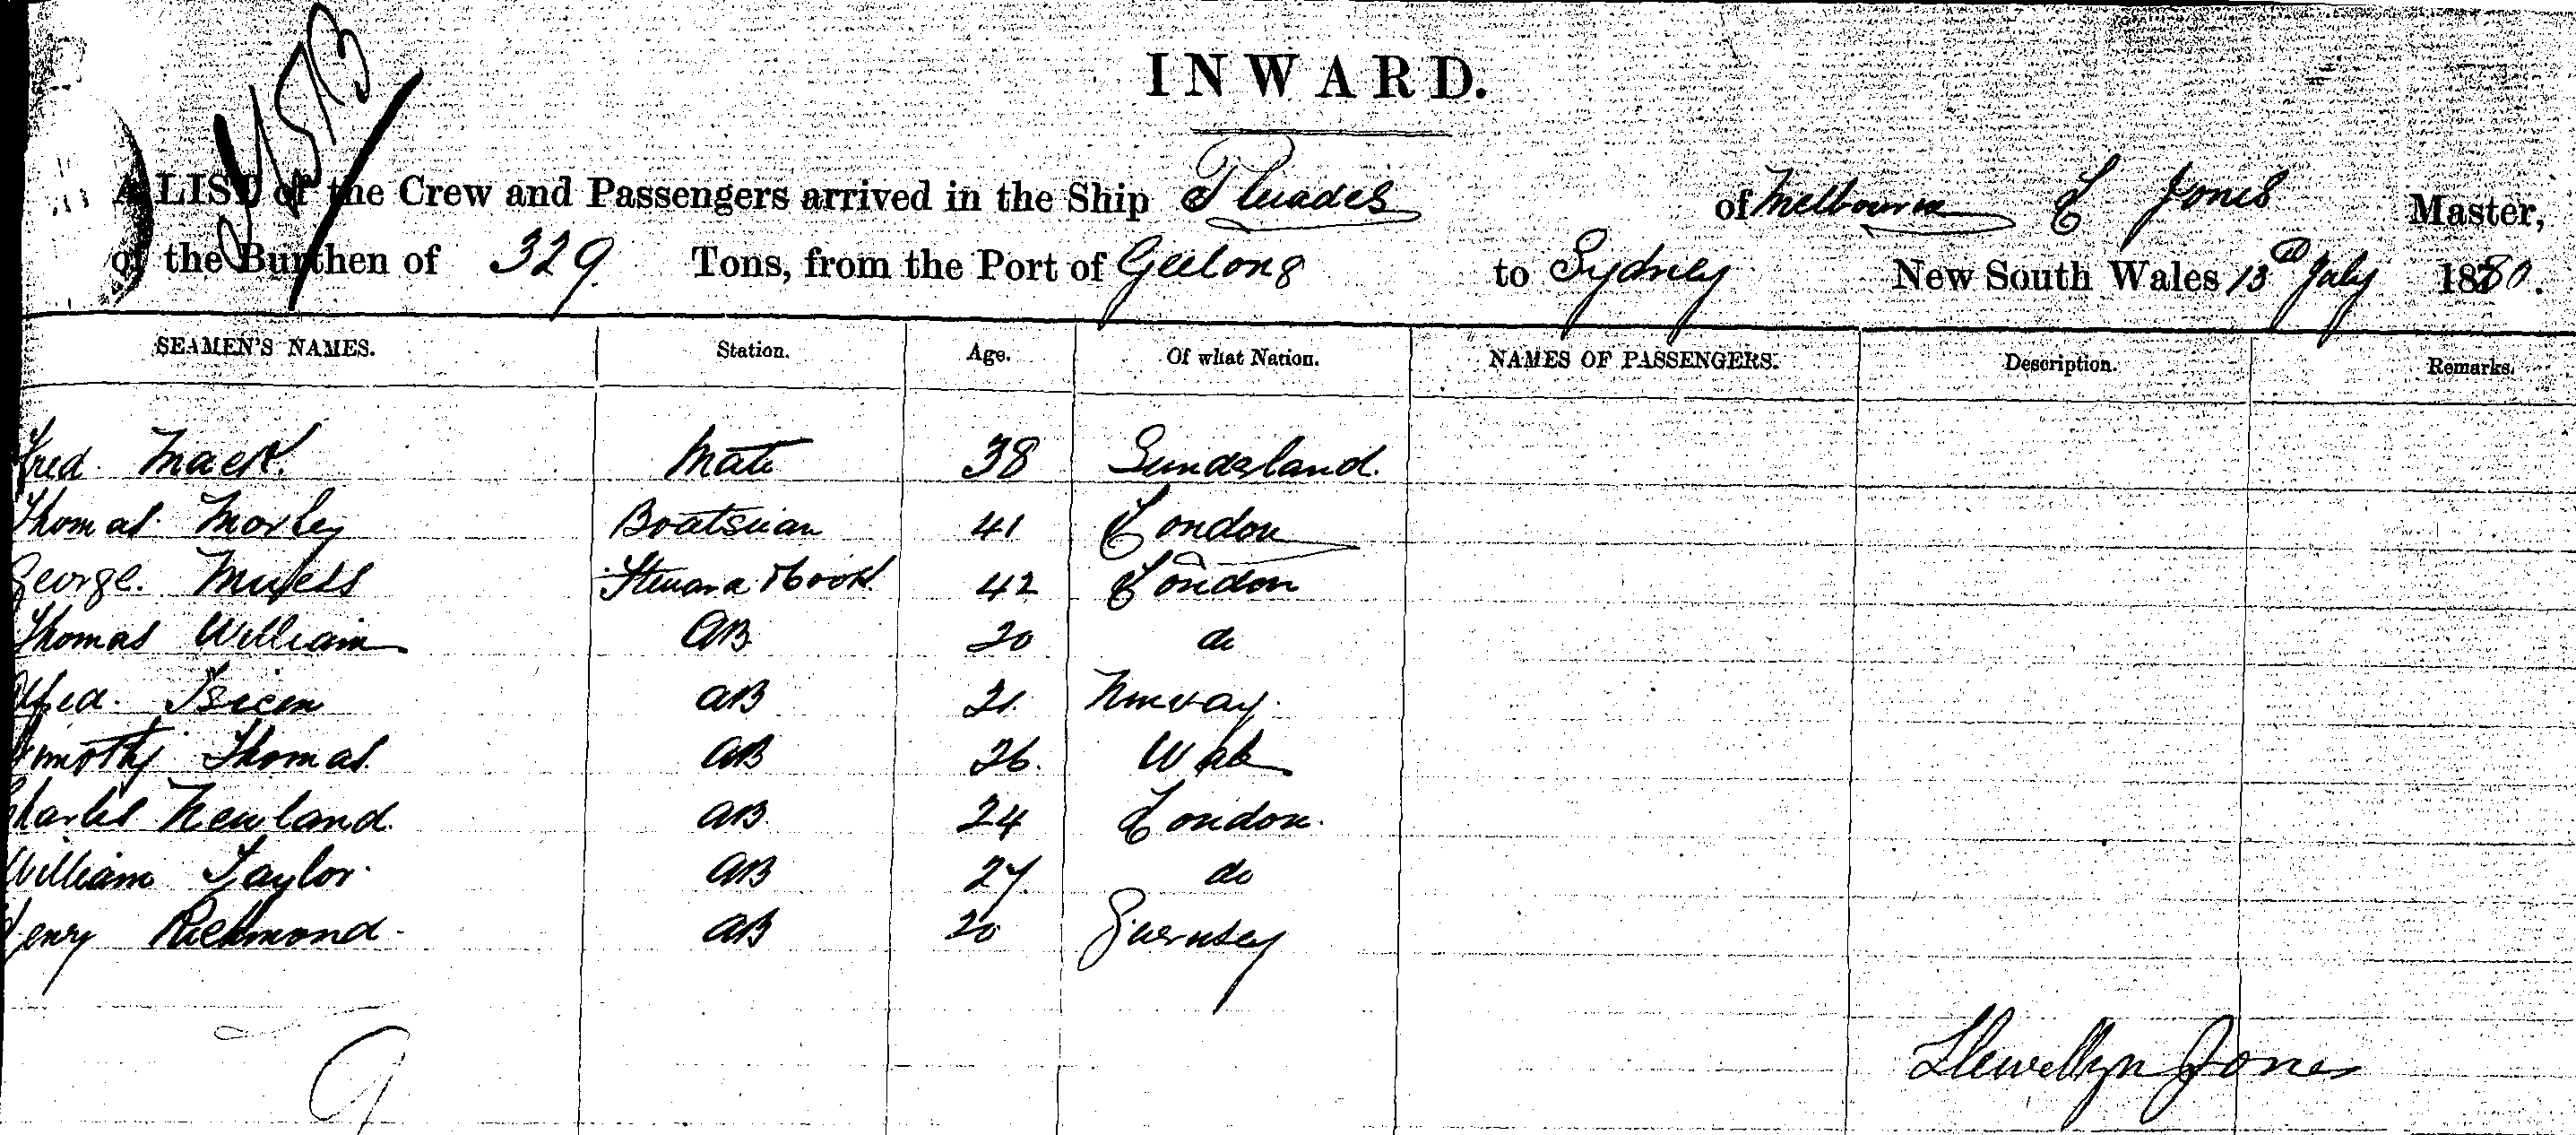 INWARD.
A LIST of the Crew and Passengers arrived in the Ship Pleiades of Melbourne L Jones Master,
of the Burthen of 329. Tons, from the Port of Geelong to Sydney New South Wales 13th July 1880.
SEAMEN'S NAMES. Station. Age. Of what Nation. NAMES OF PASSENGERS. Description. Remarks.
Fred Mack Mate 38 Sunderland.
Thomas Morley Boatsuan 41 London
George. Steward & Cook 42 London
Thomas William AB 20 do
Alfred. AB 21 Norway.
Timothy Thomas AB 26. Wales
Charles Newland AB 24 London.
William Taylor AB 27. do
Henry Richmond AB 20 Guernsey
9
Llewellyn Jones